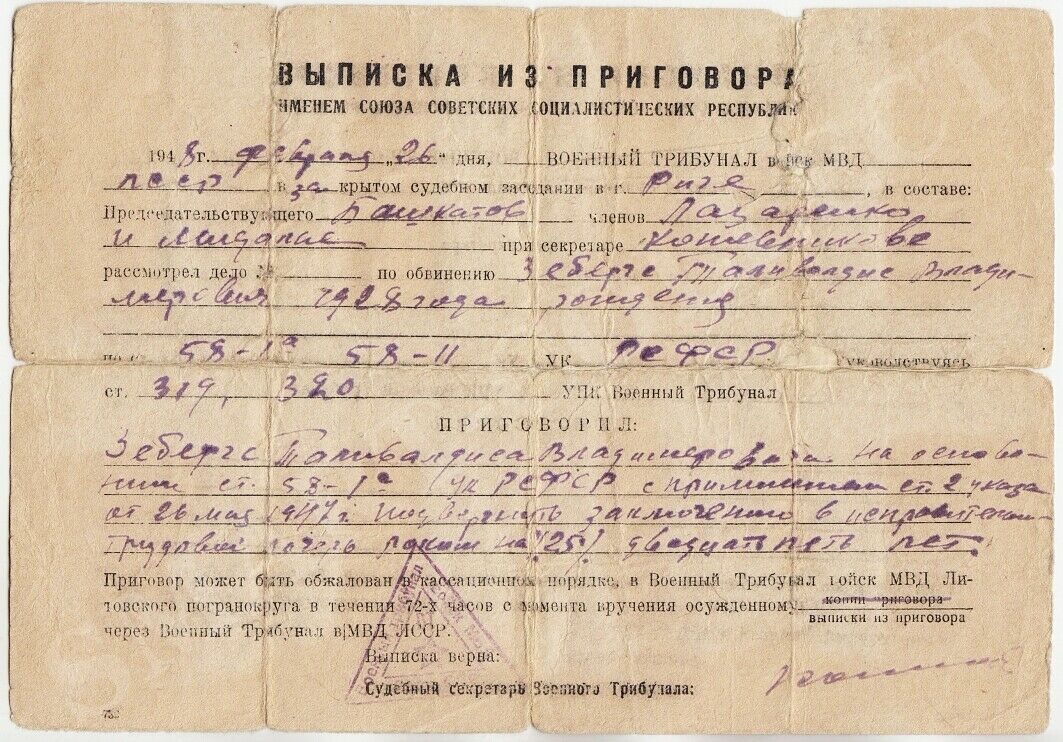 ВЫПИСКА ИЗ ПРИГОВОРА
ИМЕНЕМ СОЮЗА СОВЕТСКИХ СОЦИАЛИСТИЧЕСКИХ РЕСПУБЛИК
1948 г. февраля „26“ дня, ВОЕННЫЙ ТРИБУНАЛ войск МВД
ЛССР в закрытом судебном заседании в г. Риге, в составе:
Председательствующего Башкатов членов Лазаренко
и при секретаре Котельникове
рассмотрел дело № по обвинению Зебергс Таливалдис Влади-
мирович 1928 года рождения
по ст. 58-1а 58-11 УК РСФСР руководствуясь
ст. 319, 320 УПК Военный Трибунал
ПРИГОВОРИЛ:
Зебергс Таливалдиса Владимировича на основа-
нии ст. 58-1а УК РСФСР с применением ст. 2 указа
от 26 мая 1947 г. подвергнуть заключению в исправительно
трудовой лагерь сроком на /25/ двадцать пять лет.
Приговор может быть обжалован в кассационном порядке, в Военный Трибунал войск МВД Ли-
товского погранокруга в течении 72-х часов с момента вручения осужденному копии приговора
выписки из приговора
через Военный Трибунал в МВД ЛССР.
Выписка верна:
Судебный секретарь Военного Трибунала: